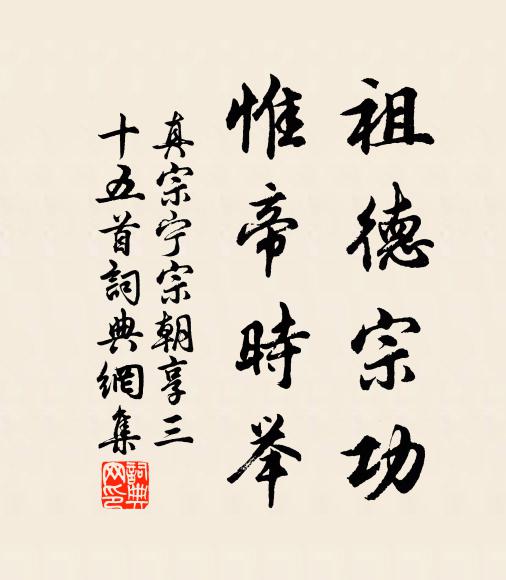 祖德宗功
惟帝時举
真宗宁宗朝享三
十五首詞典網集
詞典
网印